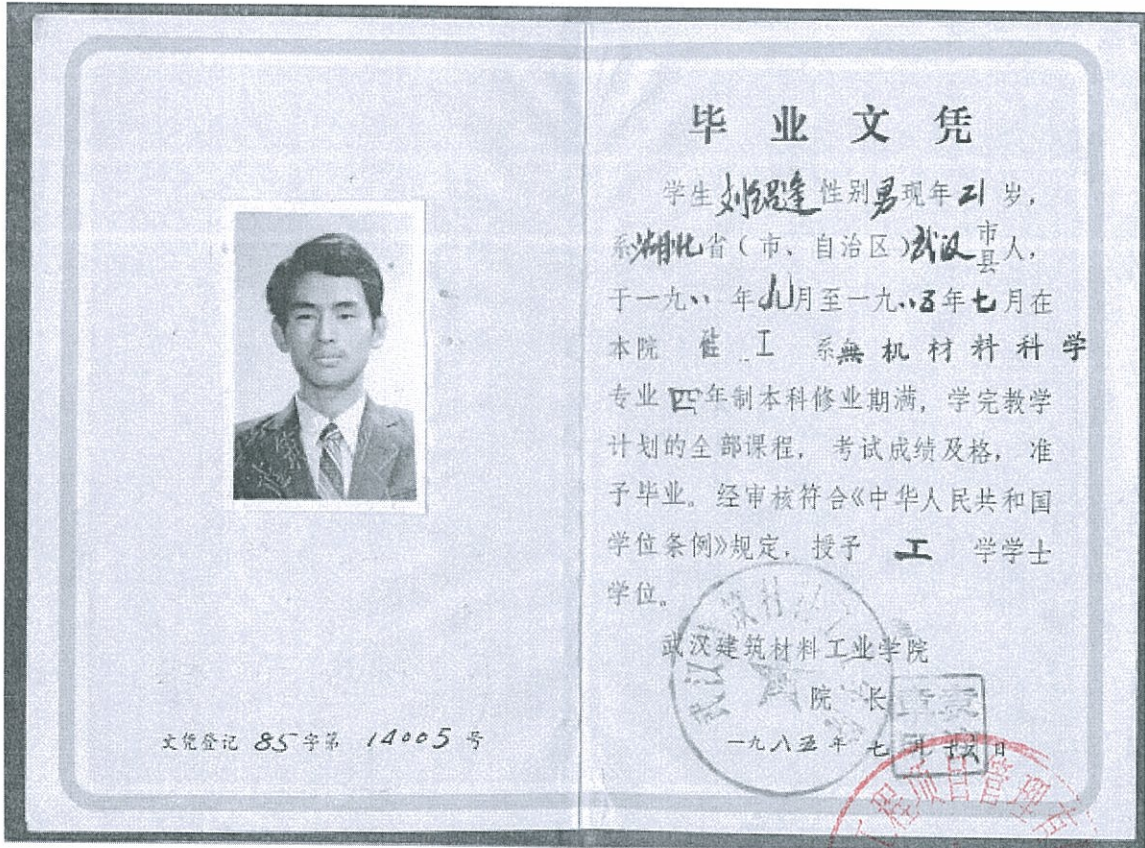 文凭登记 85 字第 14005 号
毕业文凭
学生刘绍逢性别男现年21岁,
系湖北省(市、自治区)武汉市县人,
于一九八一年九月至一九八五年七月在
本院 硅工 系無机材料科学
专业四年制本科修业期满,学完教学
计划的全部课程,考试成绩及格,准
予毕业。经审核符合《中华人民共和国
学位条例》规定,授予 工 学学士
学位。
武汉建筑材料工业学院
院长
一九八五年七月 日
程项目管理